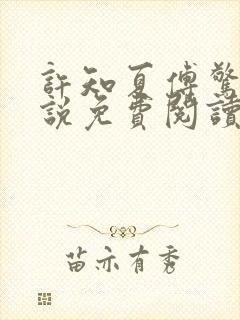 許知夏傅驚
說免費閱讀
苗亦有秀